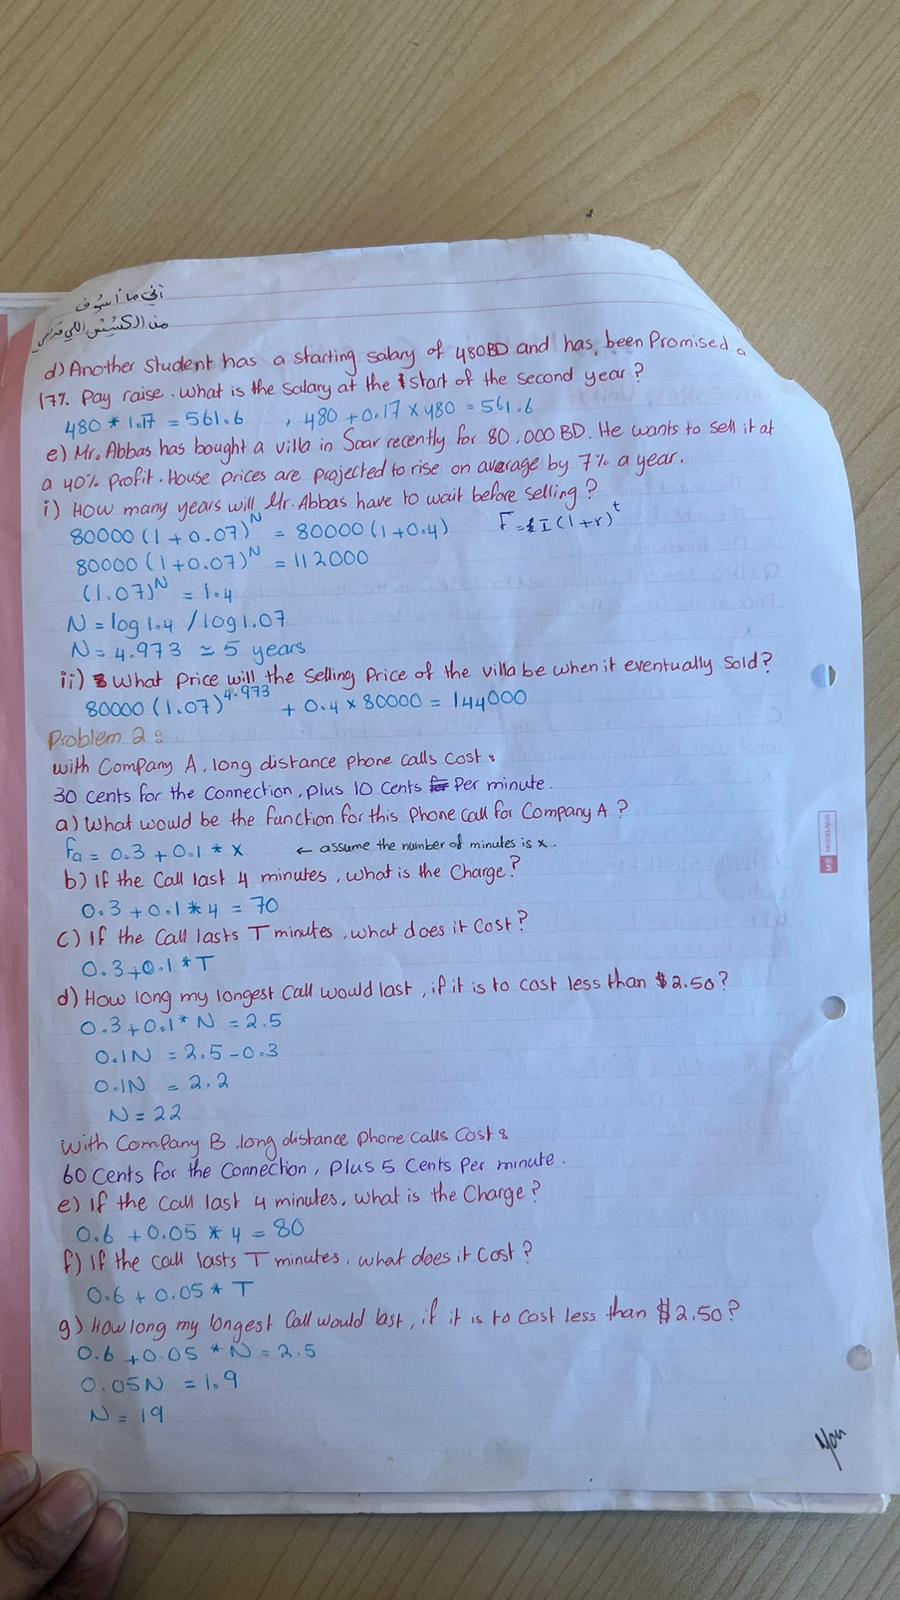 آني ما أشوف
من الكشيش اللي قدامي
d) Another student has a starting salary of 480BD and has been Promised a
17% Pay raise. What is the Salary at the start of the second year?
480 * 1.17 = 561.6 , 480 + 0.17 × 480 = 561.6
e) Mr. Abbas has bought a villa in Saar recently for 80,000 BD. He wants to sell it at
a 40% Profit. House prices are projected to rise on average by 7% a year.
i) How many years will Mr. Abbas have to wait before selling?
80000 (1 + 0.07)^N = 80000 (1+0.4) F = I (1+r)^t
80000 (1+0.07)^N = 112000
(1.07)^N = 1.4
N = log 1.4 / log 1.07
N = 4.973 ≃ 5 years
ii) What Price will the Selling Price of the villa be when it eventually Sold?
80000 (1.07)^4.973 + 0.4 × 80000 = 144000
Problem 2:
with Company A, long distance phone calls cost:
30 Cents for the Connection, plus 10 Cents Per minute.
a) What would be the function for this Phone call for Company A?
fa = 0.3 + 0.1 * x ← assume the number of minutes is x.
b) If the Call last 4 minutes, what is the Charge?
0.3 + 0.1 * 4 = 70
c) If the Call lasts T minutes, what does it Cost?
0.3 + 0.1 * T
d) How long my longest Call would last, if it is to cost less than $2.50?
0.3 + 0.1 * N = 2.5
0.1N = 2.5 - 0.3
0.1N = 2.2
N = 22
With Company B, long distance phone calls Cost:
60 Cents for the Connection, Plus 5 Cents Per minute.
e) If the Call last 4 minutes, what is the Charge?
0.6 + 0.05 * 4 = 80
f) If the call lasts T minutes, what does it Cost?
0.6 + 0.05 * T
g) How long my longest Call would last, if it is to Cost less than $2.50?
0.6 + 0.05 * N = 2.5
0.05N = 1.9
N = 19